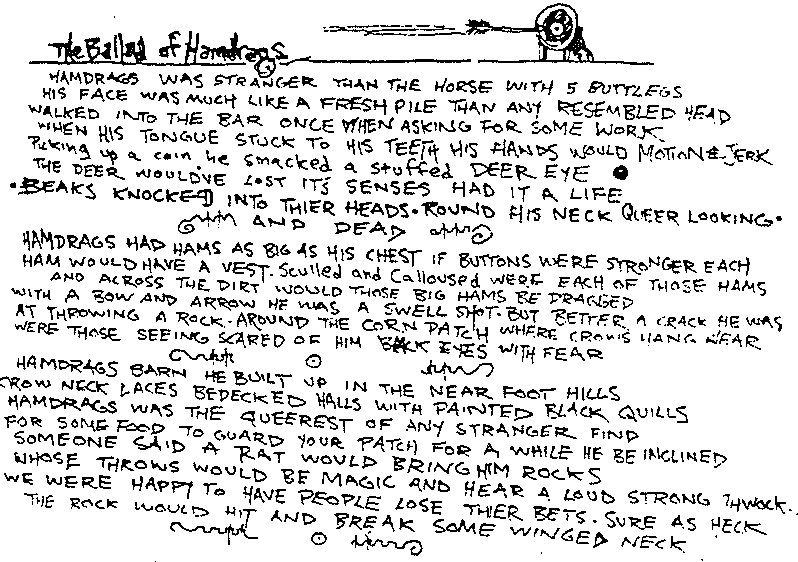 The Ballad of Hamdrags
HAMDRAGS WAS STRANGER THAN THE HORSE WITH 5 BUTTLEGS
HIS FACE WAS MUCH LIKE A FRESH PILE THAN ANY RESEMBLED HEAD
WALKED INTO THE BAR ONCE WHEN ASKING FOR SOME WORK
WHEN HIS TONGUE STUCK TO HIS TEETH HIS HANDS WOULD MOTION & JERK
Picking up a coin he smacked a stuffed DEER EYE
THE DEER WOULDVE LOST ITS SENSES HAD IT A LIFE
·BEAKS KNOCKED INTO THIER HEADS·ROUND HIS NECK QUEER LOOKING·
AND DEAD
HAMDRAGS HAD HAMS AS BIG AS HIS CHEST IF BUTTONS WERE STRONGER EACH
HAM WOULD HAVE A VEST. Sculled and Calloused WERE EACH OF THOSE HAMS
AND ACROSS THE DIRT WOULD THOSE BIG HAMS BE DRAGGED
WITH A BOW AND ARROW HE WAS A SWELL SHOT. BUT BETTER A CRACK HE WAS
AT THROWING A ROCK. AROUND THE CORN PATCH WHERE CROWS HANG NEAR
WERE THOSE SEEING SCARED OF HIM EYES WITH FEAR
HAMDRAGS BARN HE BUILT UP IN THE NEAR FOOT HILLS
CROW NECK LACES BEDECKED HALLS WITH PAINTED BLACK QUILLS
HAMDRAGS WAS THE QUEEREST OF ANY STRANGER FIND
FOR SOME FOOD TO GUARD YOUR PATCH FOR A WHILE HE BE INCLINED
SOMEONE SAID A RAT WOULD BRING HIM ROCKS
WHOSE THROWS WOULD BE MAGIC AND HEAR A LOUD STRONG THWOCK.
WE WERE HAPPY TO HAVE PEOPLE LOSE THIER BETS. SURE AS HECK
THE ROCK WOULD HIT AND BREAK SOME WINGED NECK